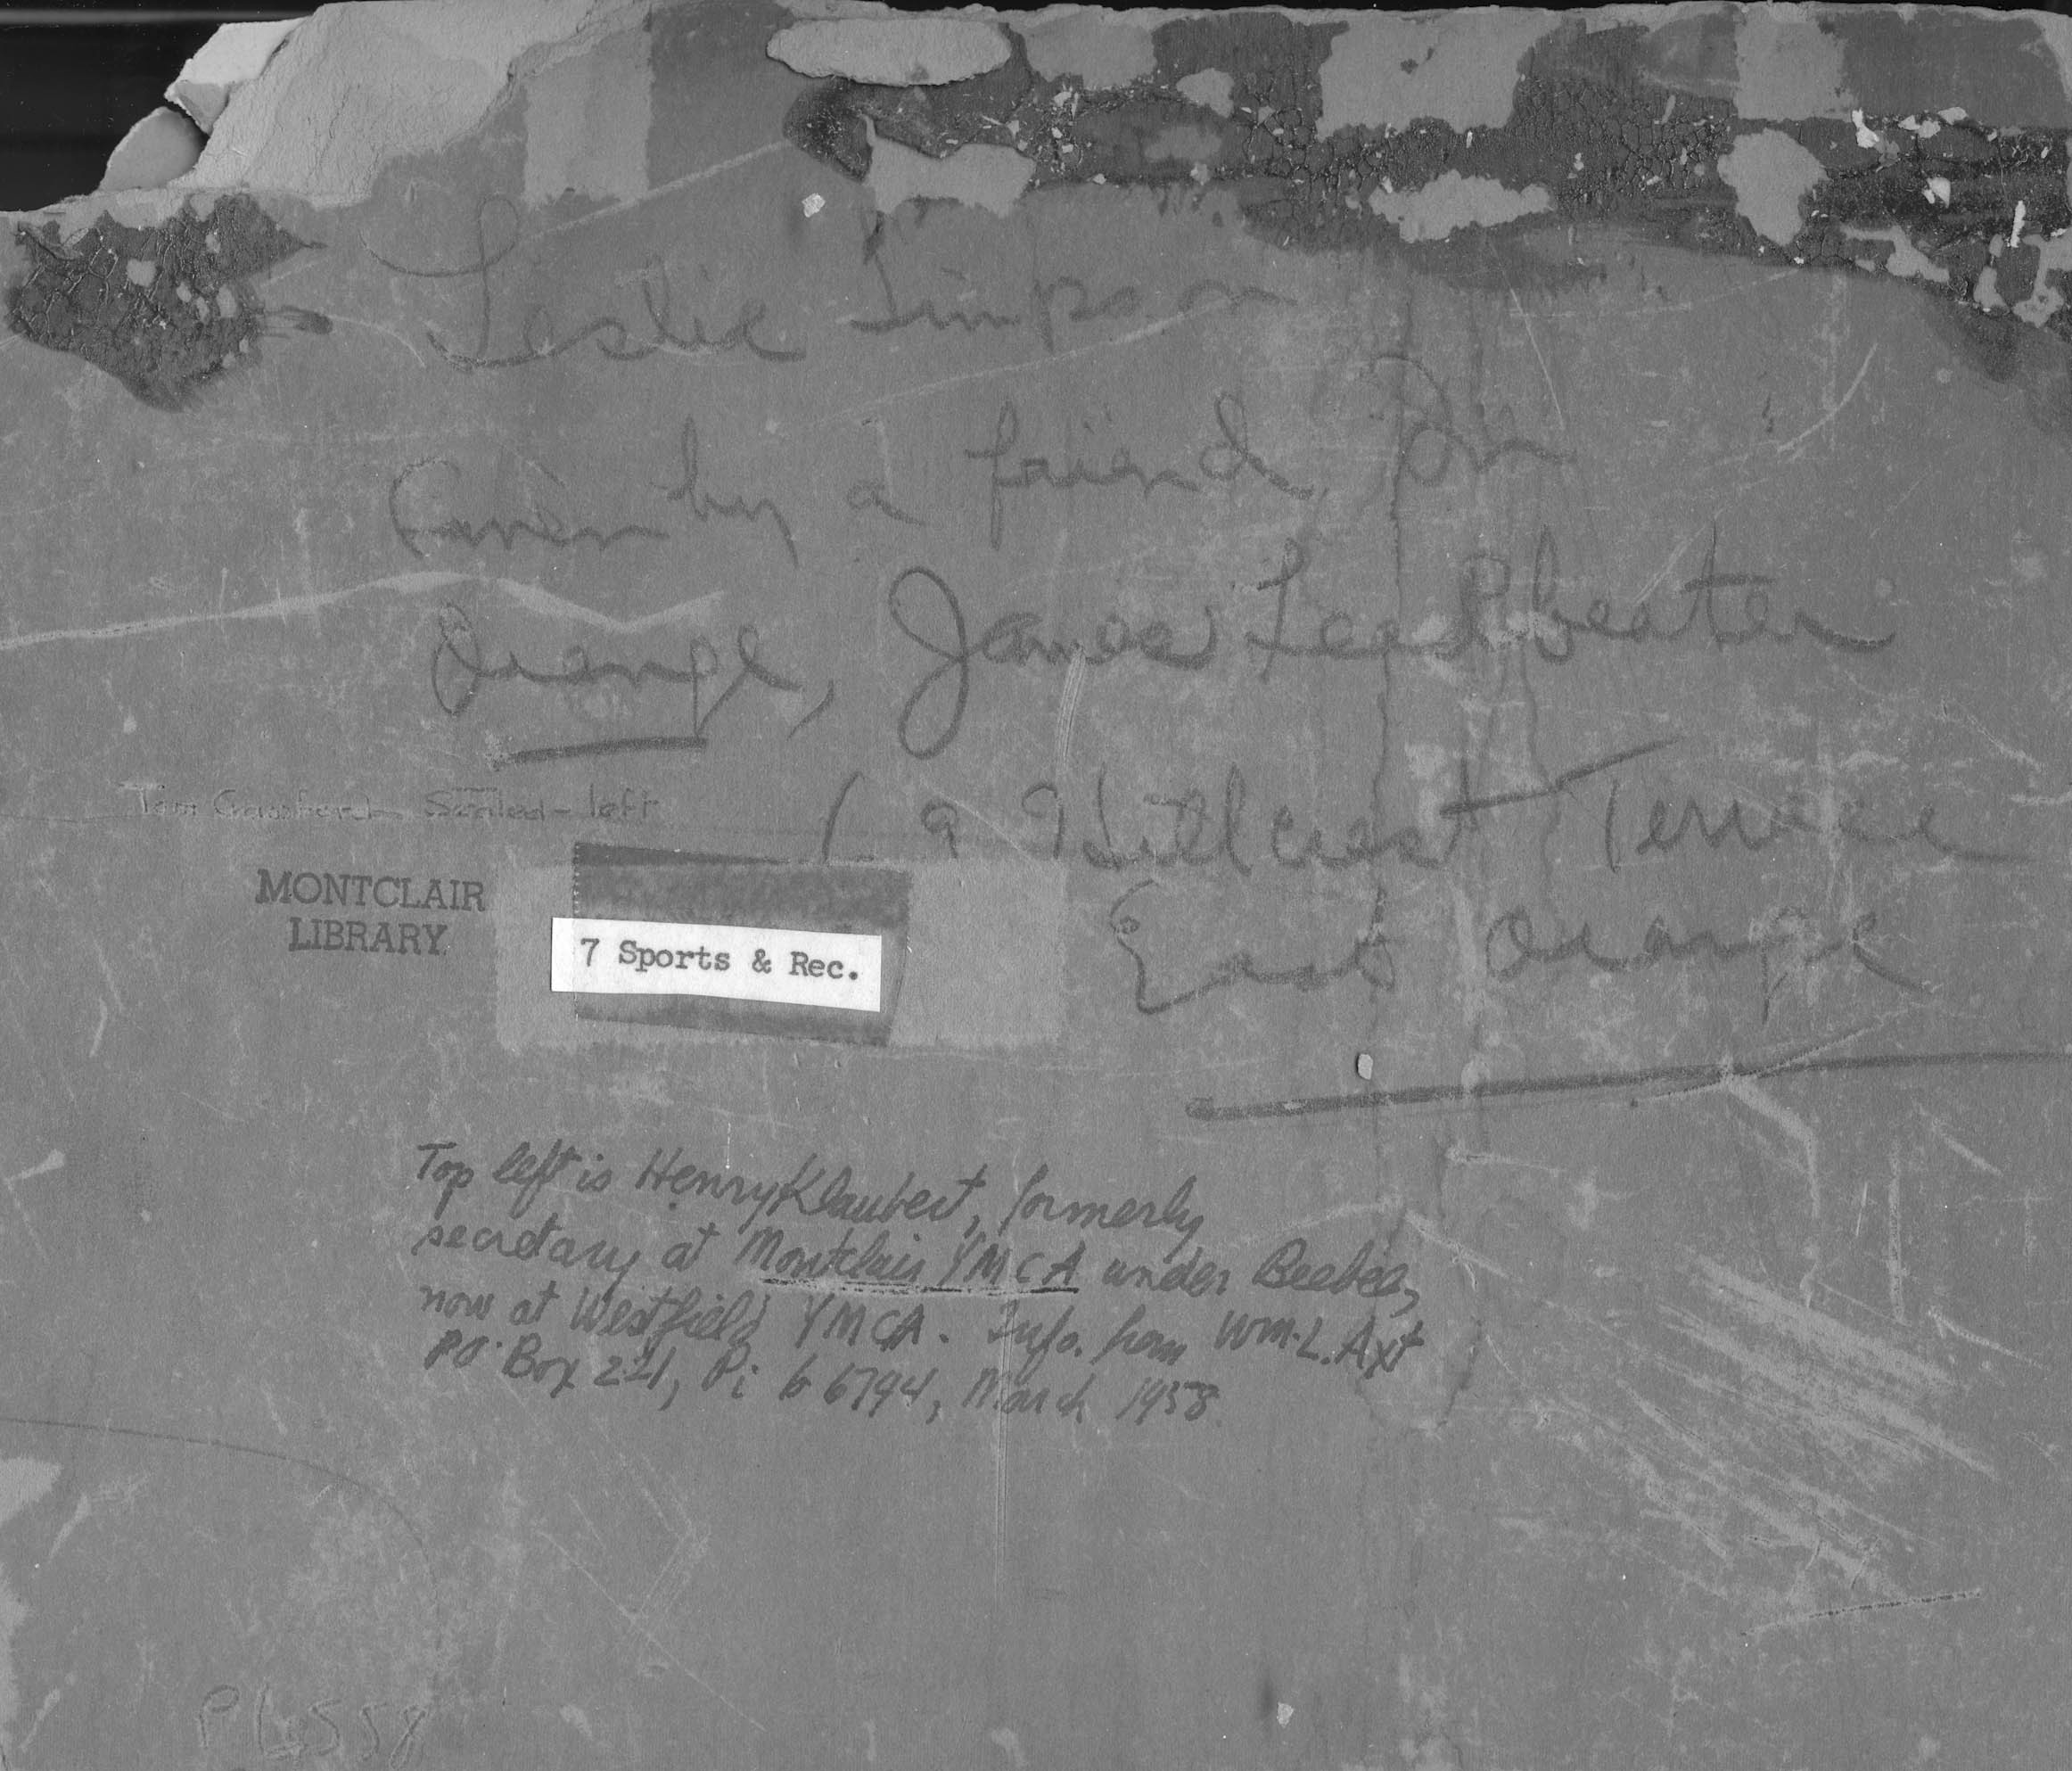 Leslie Simpson
Given by a friend, In
Orange, James Leadbeater
19 Hillcrest Terrace
East Orange
Tom Crawford Seated - left
MONTCLAIR
LIBRARY
7 Sports & Rec.
Top left is Henry Klaubert, formerly
secretary at Montclair YMCA under Beebee,
now at Westfield YMCA. Info. from Wm. L. Axt
PO. Box 221, Pi 6 6794, March 1958
P6558